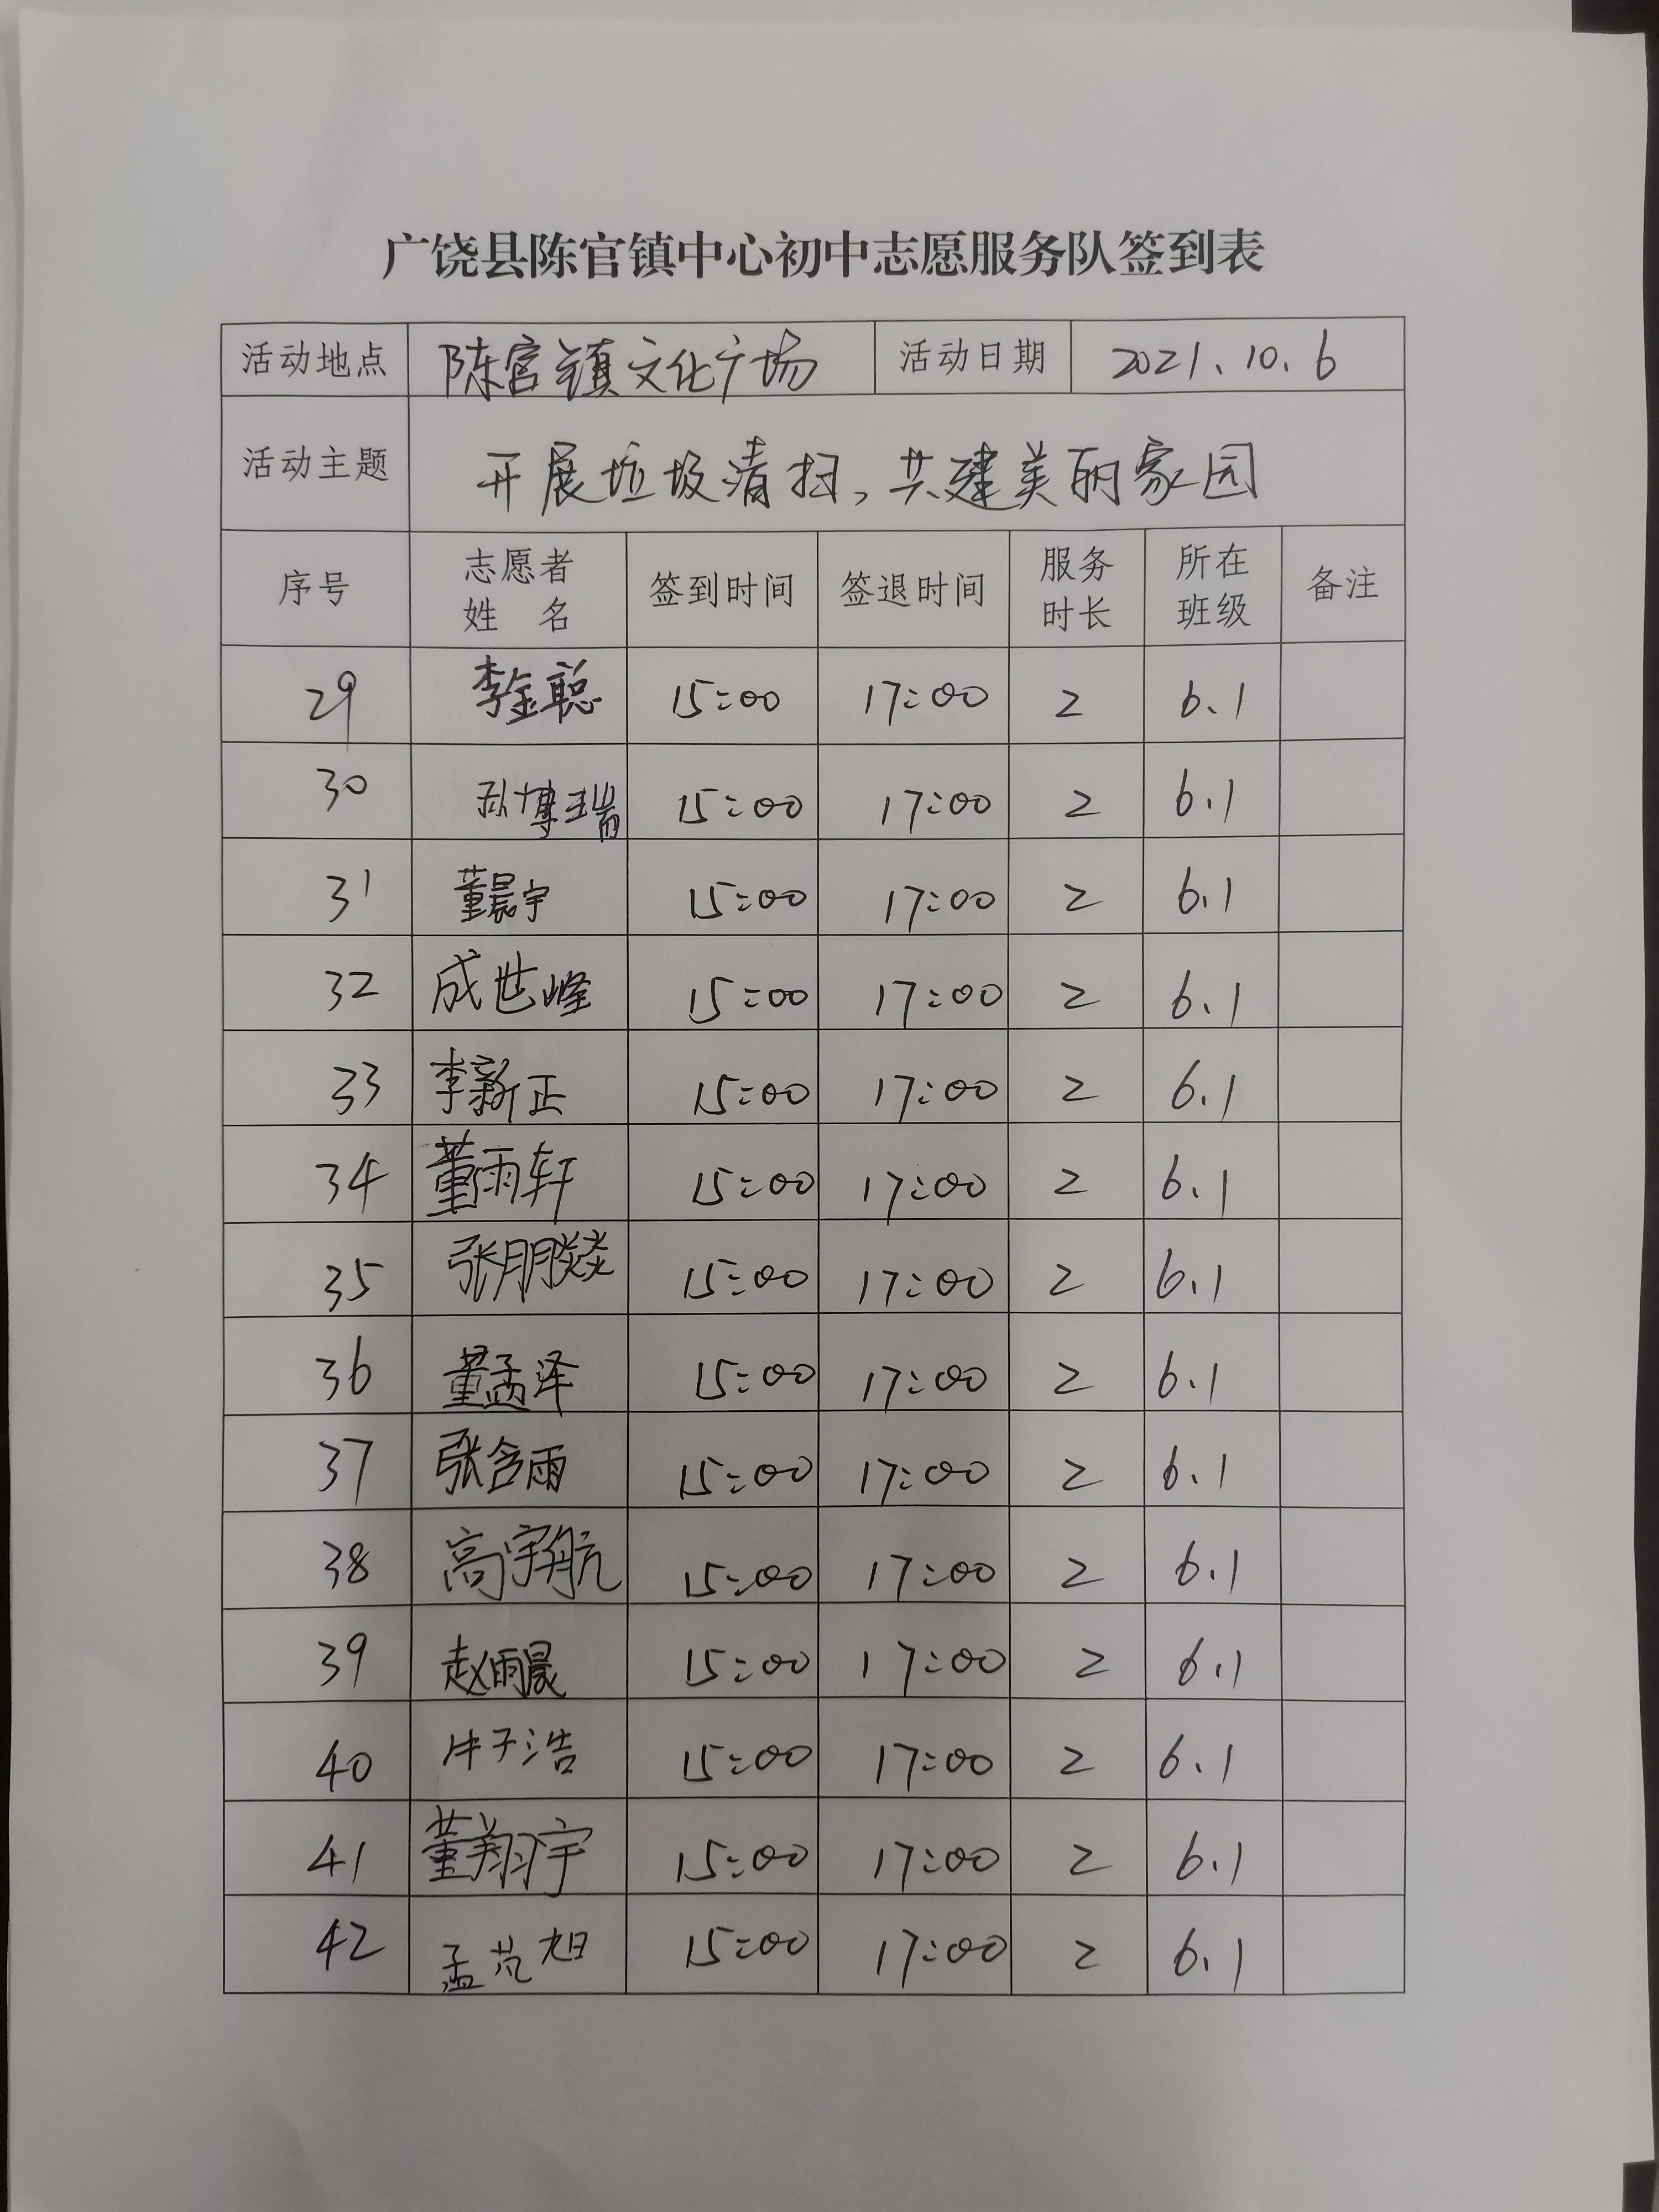 广饶县陈官镇中心初中志愿服务队签到表
活动地点 陈官镇文化广场 活动日期 2021.10.6
活动主题 开展垃圾清扫，共建美丽家园
序号 志愿者姓名 签到时间 签退时间 服务时长 所在班级 备注
29 李金聪 15:00 17:00 2 6.1
30 孙博瑞 15:00 17:00 2 6.1
31 董晨宇 15:00 17:00 2 6.1
32 成世峰 15:00 17:00 2 6.1
33 李新正 15:00 17:00 2 6.1
34 董雨轩 15:00 17:00 2 6.1
35 张朋燚 15:00 17:00 2 6.1
36 董孟泽 15:00 17:00 2 6.1
37 张含雨 15:00 17:00 2 6.1
38 高宇航 15:00 17:00 2 6.1
39 赵雨晨 15:00 17:00 2 6.1
40 子浩 15:00 17:00 2 6.1
41 董翔宇 15:00 17:00 2 6.1
42 孟范旭 15:00 17:00 2 6.1